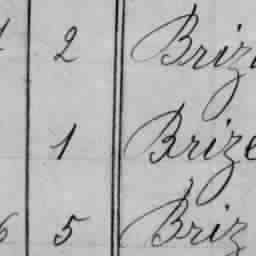 2 Briz
1 Brize
5 Briz